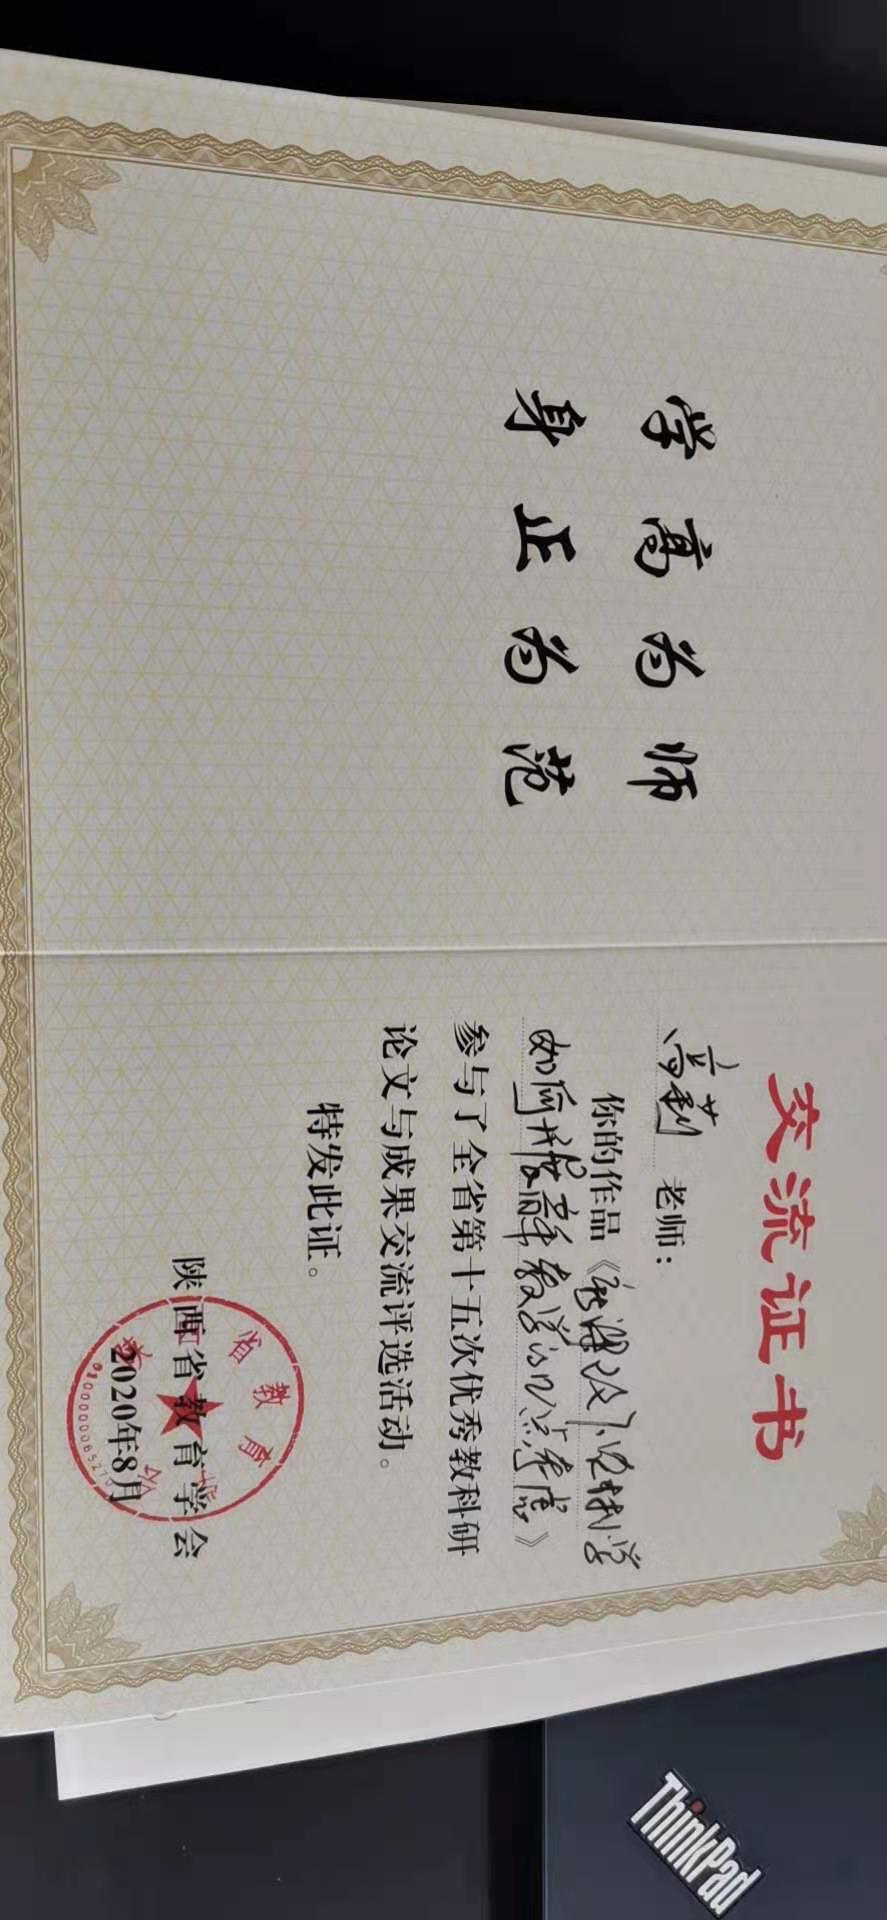 学高为师
身正为范
交流证书
高莉 老师：
你的作品《新课改下
如何开展
教学的几点考虑》
参与了全省第十五次优秀教科研
论文与成果交流评选活动。
特发此证。
陕西省教育学会
2020年8月
省教育
ThinkPad